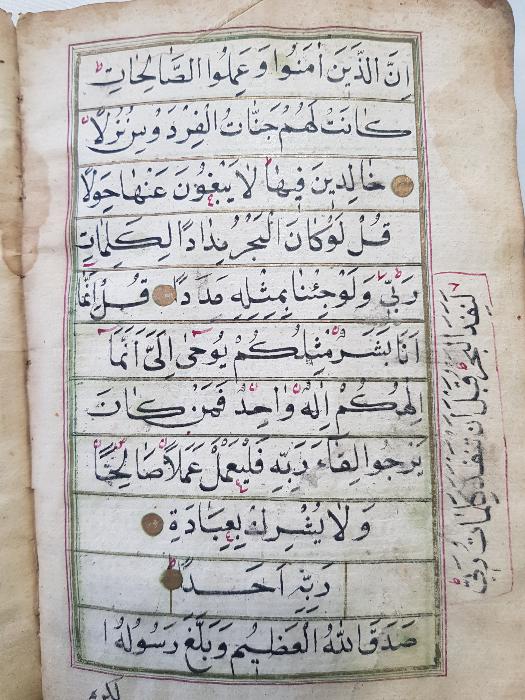 اِنَّ الَّذ۪ينَ اٰمَنُوا وَعَمِلُوا الصَّالِحَاتِ
كَانَتْ لَهُمْ جَنَّاتُ الْفِرْدَوْسِ نُزُلًا
خَالِدينَ فيهَا لَا يَبْغُونَ عَنْهَا حِوَلًا
قُلْ لَوْ كَانَ الْبَحْرُ مِدَادًا لِكَلِمَاتِ
رَبّي وَلَوْ جِئْنَا بِمِثْلِهِ مَدَدًا قُلْ اِنَّمَا
اَنَا بَشَرٌ مِثْلُكُمْ يُوحٰى اِلَىَّ اَنَّمَا
اِلٰهُكُمْ اِلٰهٌ وَاحِدٌ فَمَنْ كَانَ
يَرْجُوا لِقَاءَ رَبِّهِ فَلْيَعْمَلْ عَمَلًا صَالِحًا
وَلَا يُشْرِكْ بِعِبَادَةِ
رَبِّهِ اَحَدًا
صَدَقَ اللهُ الْعَظيمُ وَبَلَّغَ رَسُولُهُ ا
لكريم
لَنَفِدَ الْبَحْرُ قَبْلَ اَنْ تَنْفَدَ كَلِمَاتُ رَبّي